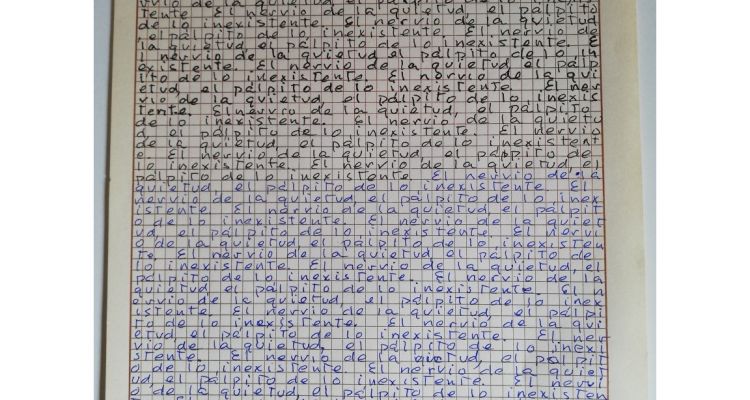 vvio de la quietud el pálpito de lo inexis
tente. El nervio de la quietud el pálpito
de lo inexistente. El nervio de la quietud
, el pálpito de lo inexistente. El nervio de
la quietud, el pálpito de lo inexistente. E
l nervio de la quietud el pálpito de lo in
existente. El nervio de la quietud, el pálp
ito de lo inexistente. El nervio de la qui
etud, el pálpito de lo inexistente. El ner
vio de la quietud, el pálpito de lo inexis
tente. El nervio de la quietud, el pálpito
de lo inexistente. El nervio de la quietu
d, el pálpito de lo inexistente. El nervio
de la quietud, el pálpito de lo inexistent
e. El nervio de la quietud, el pálpito de
lo inexistente. El nervio de la quietud, el
pálpito de lo inexistente. El nervio de la
quietud, el pálpito de lo inexistente. El
nervio de la quietud, el pálpito de lo inex
istente. El nervio de la quietud, el pálpit
o de lo inexistente. El nervio de la quiet
ud, el pálpito de lo inexistente. El nervi
o de la quietud, el pálpito de lo inexisten
te. El nervio de la quietud, el pálpito de
lo inexistente. El nervio de la quietud, el
pálpito de lo inexistente. El nervio de la
quietud el pálpito de lo inexistente. El n
ervio de la quietud, el pálpito de lo inex
istente. El nervio de la quietud, el pálpi
to de lo inexistente. El nervio de la qui
etud, el pálpito de lo inexistente. El ner
vio de la quietud, el pálpito de lo inexi
stente. El nervio de la quietud, el pálpit
o de lo inexistente. El nervio de la quiet
ud, el pálpito de lo inexistente. El nervi
o de la quietud, el pálpito de lo inexisten